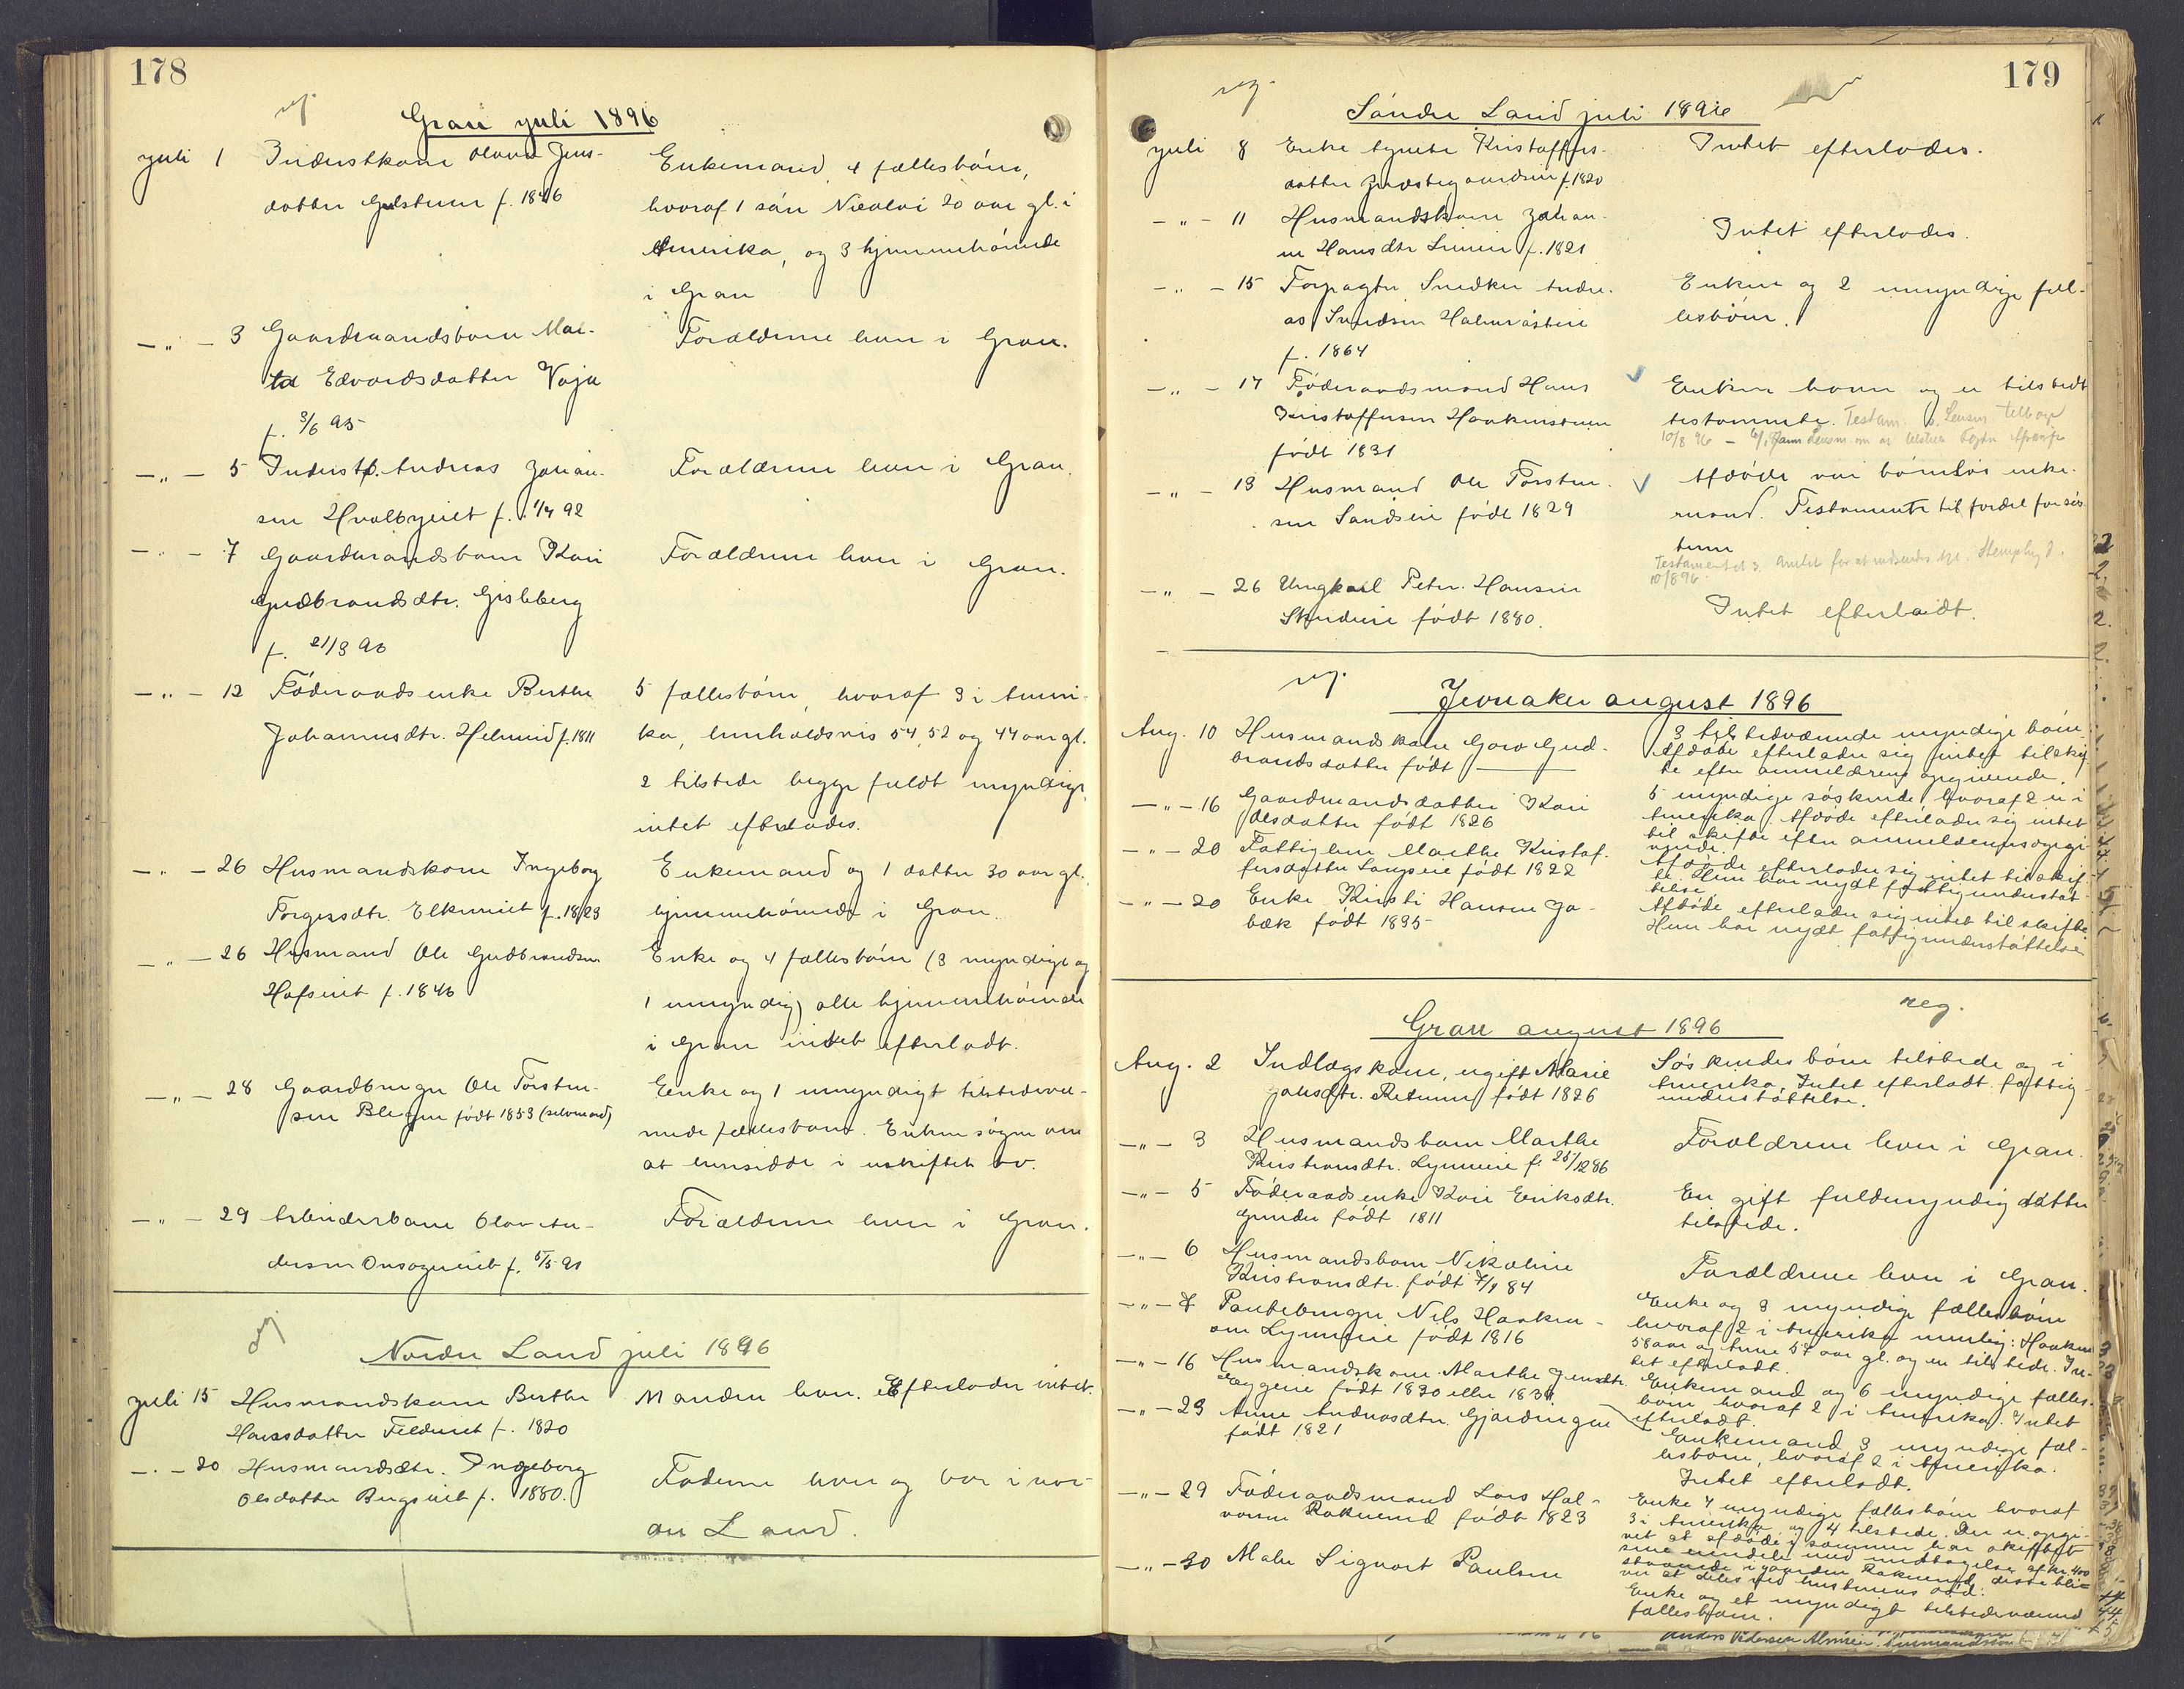 178
reg.
Gran juli 1896
juli 1 Inderstkone Olava Jens-
datter Gulstuen f. 1846
Enkemand, 4 fællesbörn,
hvoraf 1 sön Nicolai 20 aar gl. i
Amerika, og 3 hjemmehörende
i Gran
-"- 3 Gaardmandsbarn Mar-
ta Edvardsdatter Voje
f. 3/6 95
Forældrene lever i Gran.
-"- 5 Inderstb. Andreas Johan-
sen Hvalbyeiet f. 1/4 92
Forældrene lever i Gran.
-"- 7 Gaardmandsbarn Kari
Gudbrandsdtr. Gisleberg
f. 21/3 96
Forældrene lever i Gran.
-"- 12 Föderaadsenke Berthe
Johannesdtr. Helmeid f. 1811
5 fællesbörn, hvoraf 3 i Ameri-
ka, henholdsvis 54, 52 og 44 aar gl.
2 tilstede begge fuldt myndige,
intet efterlodes.
-"- 26 Husmandskone Ingeborg
Torgersdtr. Elkeneiet f. 1823
Enkemand og 1 datter 30 aar gl.
hjemmehörende i Gran.
-"- 26 Husmand Ole Gudbrandsen
Hofseiet f. 1846
Enke og 4 fællesbörn (3 myndige og
1 umyndig) alle hjemmehörende
i Gran intet efterladt.
-"- 28 Gaardbruger Ole Torsten-
sen Blegen født 1853 (selvmord)
Enke og 1 umyndigt tilstedevæ-
rende fællesbarn. Enken søger om
at hensidde i uskiftet bo.
-"- 29 Arbeiderbarn Olav An-
dersen Onsagereiet f. 5/5 91
Forældrene lever i Gran.
reg
Nordre Land juli 1896
juli 15 Husmandskone Berthe
Hansdatter Felderet f. 1820
Manden lever. Efterlader intet.
-"- 20 Husmandsdtr. Ingeborg
Olsdatter f. 1880.
Faderen lever og bor i nor-
dre Land.
179
reg.
Söndre Land juli 1896
juli 8 Enke Agnete Kristoffers-
datter Præstegaardseie f. 1820
Intet efterlodes.
-"- 11 Husmandskone Johan-
ne Hansdtr Linnei f. 1821
Intet efterlodes.
-"- 15 Forpagter Snedker Andre-
as Svendsen
f. 1864
Enken og 2 umyndige fæl-
lesbörn.
-"- 17 Föderaadsmand Hans
Kristoffersen Haakenstuen
födt 1831
Enken lever og er tilstedt
testamente. Testam. Lensm. tilbage
10/8 96 -
-"- 18 Husmand Ole Torsten-
sen Sandseie födt 1829
Afdöde var barnlös enke-
mand. Testamente til fordel for sös-
teren
Testamentet s. Amtet for at indsendes Stempling d.
10/8 96
-"- 26 Ungkarl Peter Hansen
födt 1880.
Intet efterladt.
reg.
Jevnaker august 1896
Aug. 10 Husmandskone Goro Gud-
brandsdatter födt ——
3 tilstedværende myndige börn.
Afdöde efterlader sig intet til skif-
te efter anmelderens opgivende.
-"- 16 Gaardmandsdatter Kari
Olsdatter födt 1826
5 myndige söskende, hvoraf 2 er i
Amerika. Afdöde efterlader sig intet
til skifte efter anmelderens opgi-
vende.
-"- 20 Fattiglem Marthe Kristof-
fersdatter födt 1822
Afdöde efterlader sig intet til skif-
te. Hun har nydt fattigunderstöt-
telse
-"- 20 Enke Kirsti Hansen Ja-
bæk födt 1835
Afdöde efterlader sig intet til skifte
Hun har nydt fattigunderstöttelse
reg.
Gran august 1896
Aug. 2 Indlagskone, ugift Marie
födt 1826
Söskendebörn tilstede og i
Amerika, Intet efterladt. fattig-
understöttelse.
-"- 3 Husmandsbarn Marthe
Kristiansdtr. Lynneie f. 25/12 86
Forældrene lever i Gran.
-"- 5 Föderaadsenke Kari Eriksdtr.
Grinder födt 1811
En gift fuldmyndig datter
tilstede.
-"- 6 Husmandsbarn Nikoline
Kristiansdtr. födt 7/1 84
Forældrene lever i Gran.
-"- 7 Pantebruger Nils Haaken-
sen Lynneie födt 1816
Enke og 3 myndige fællesbörn
hvoraf 2 i Amerika nemlig: Haaken
58 aar og Arne 57 aar gl. og en tilstede. In-
tet efterladt.
-"- 16 Husmandskone Marthe Jensdtr.
födt 1830 eller 1831
Enkemand og 6 myndige fælles-
börn hvoraf 2 i Amerika. Intet
efterladt.
-"- 23 Anne Andreasdtr. Gjerdingen
födt 1821
Enkemand 3 myndige fæl-
lesbörn, hvoraf 2 i Amerika.
Intet efterladt.
-"- 29 Föderaadsmand Lars Hal-
vorsen Raknerud födt 1823
Enke 7 myndige fællesbörn hvoraf
3 i Amerika og 4 tilstede. Der er opgi-
vet at afdöde sammen har skiftet
sine eiendele med undtagelse af kr. 400
staaende i gaarden Raknerud, disse bli-
ver at deles ved hustruens död.
-"- 30 Maler Sigvart Paulsen
Enke og et myndigt tilstedeværende
fællesbarn.